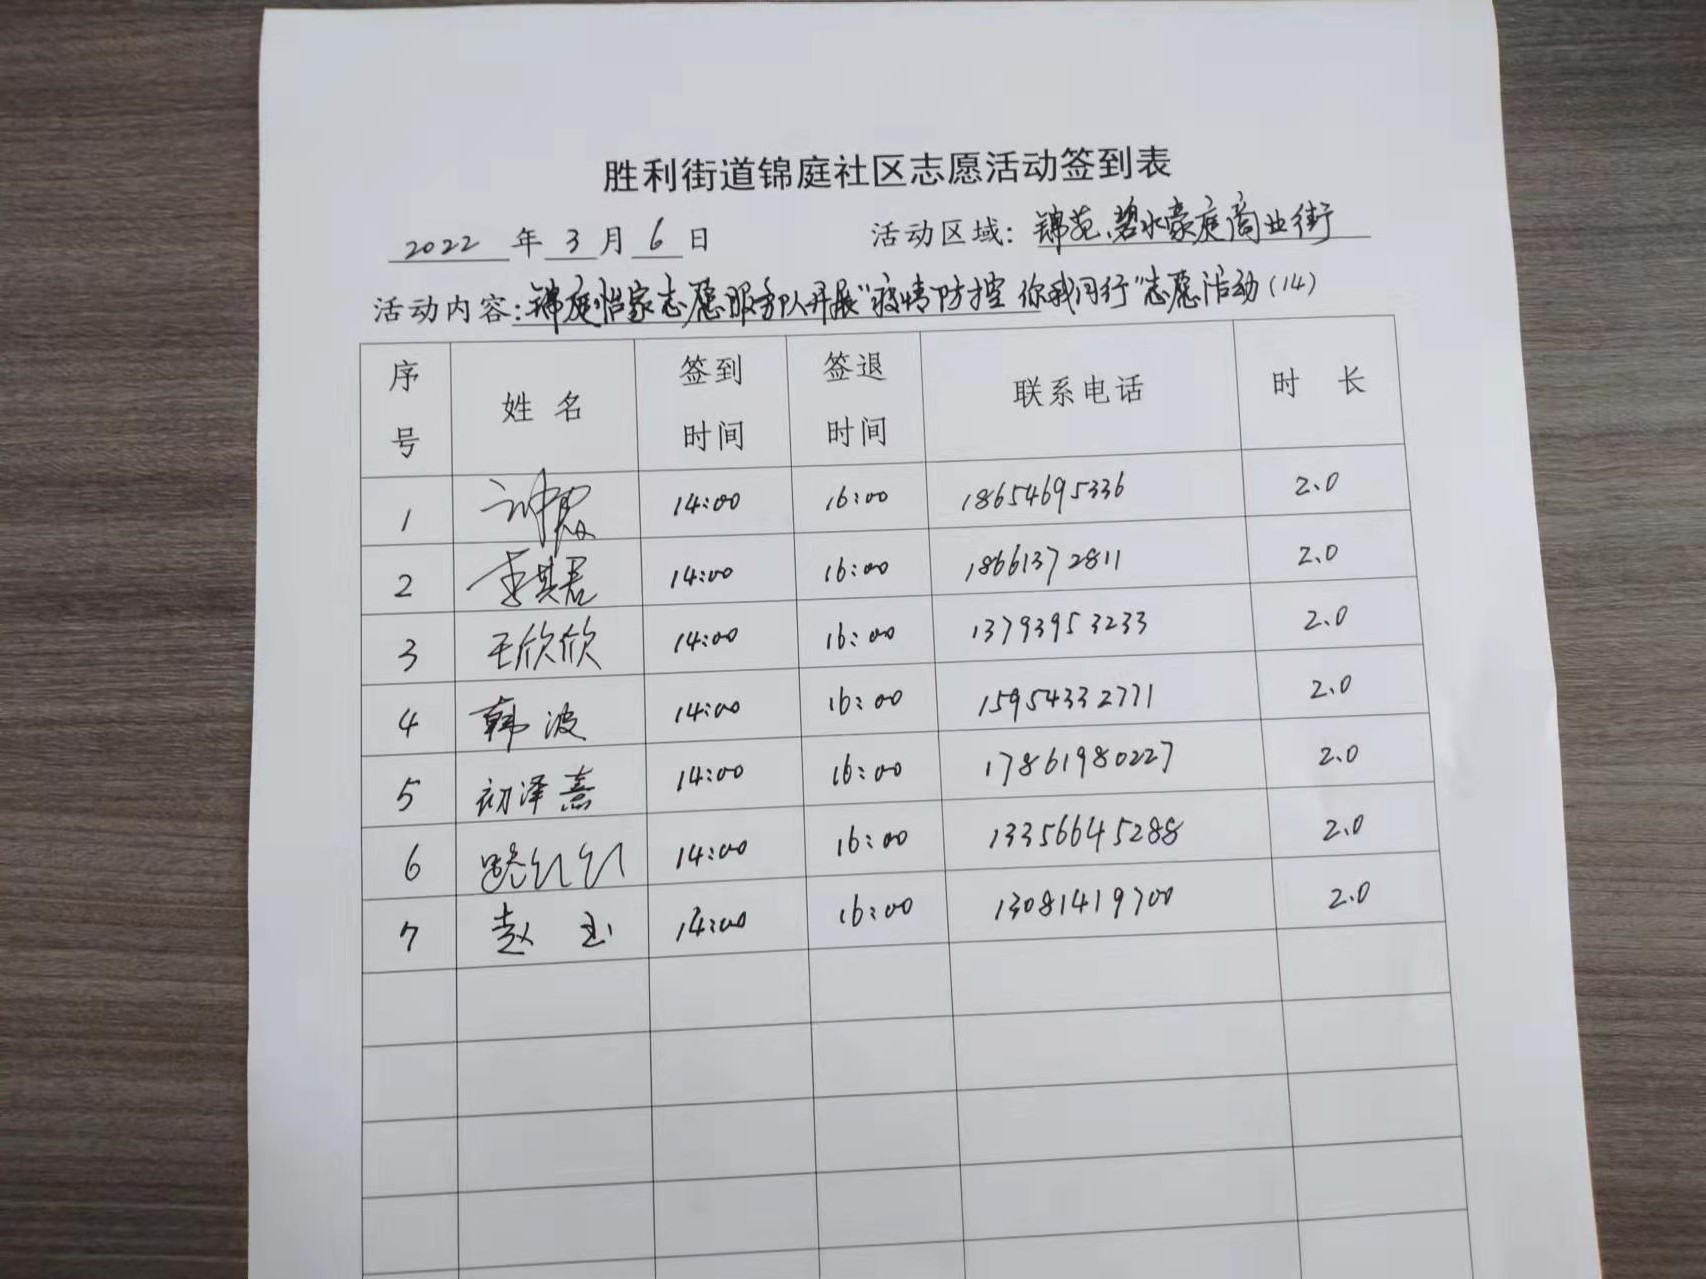 胜利街道锦庭社区志愿活动签到表
2022 年 3 月 6 日 活动区域: 锦苑、碧水豪庭商业街
活动内容: 锦庭怡家志愿服务队开展"疫情防控 你我同行"志愿活动(14)
序号 姓名 签到时间 签退时间 联系电话 时长
1 14:00 16:00 18654695336 2.0
2 李其君 14:00 16:00 18661372811 2.0
3 王欣欣 14:00 16:00 13793953233 2.0
4 韩波 14:00 16:00 15954332771 2.0
5 初泽熹 14:00 16:00 17861980227 2.0
6 14:00 16:00 13356645288 2.0
7 赵玉 14:00 16:00 13081419700 2.0